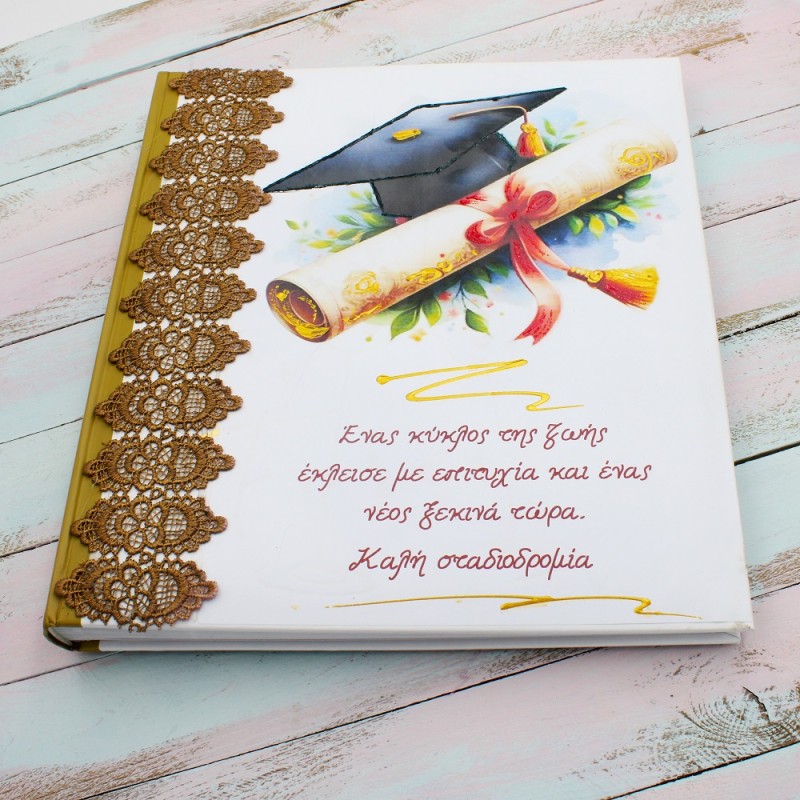 Ένας κύκλος της ζωής
έκλεισε με επιτυχία και ένας
νέος ξεκινά τώρα.
Καλή σταδιοδρομία